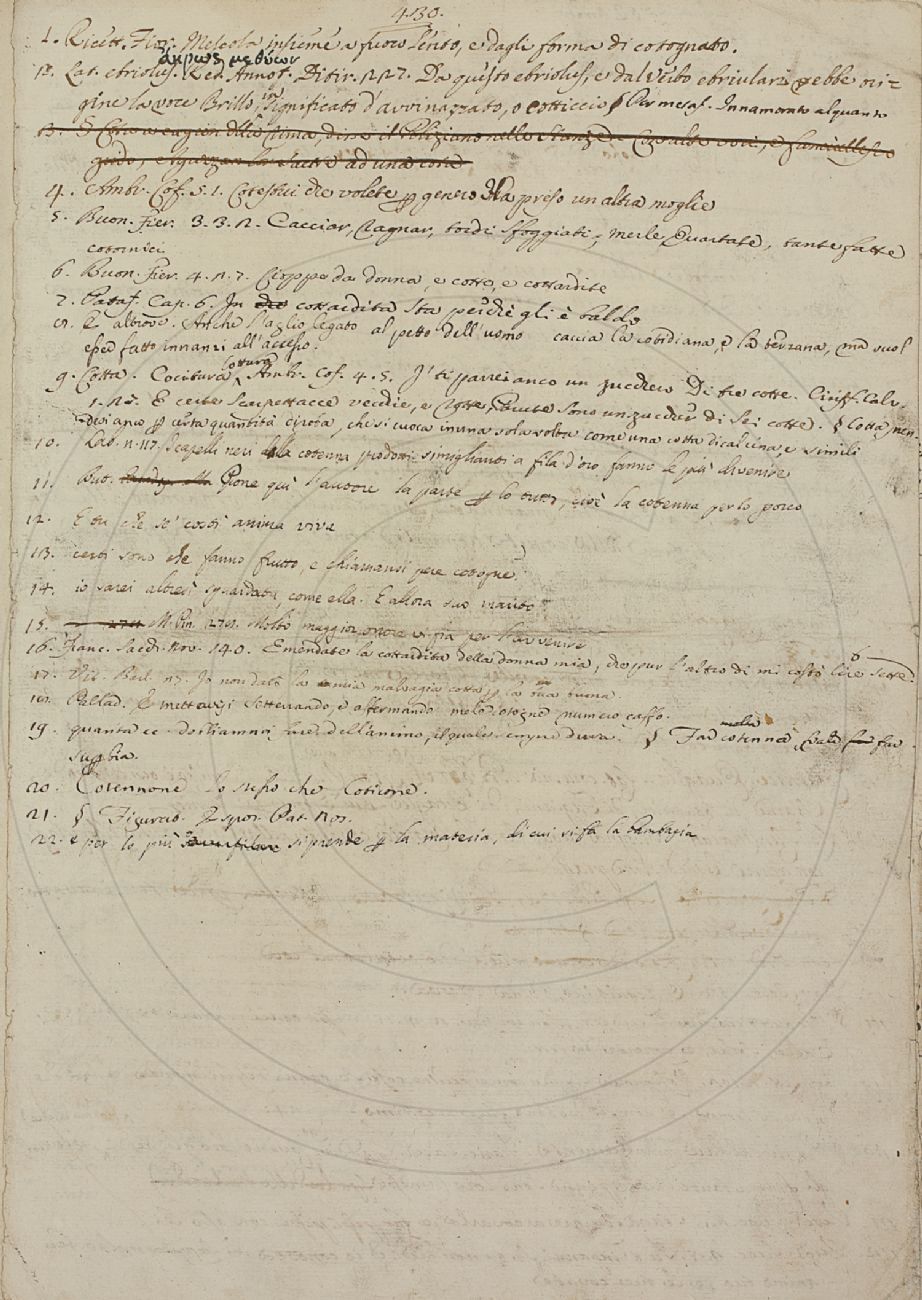 430.
1. Ricett. Fior. Mescola insieme a fuoco lento, e dagli forma di cotognato.
ἄκρως μεθύων
2. Lat. ebriolus. Red. Annot. Ditir. 127. Da questo ebriolus, e dal verbo ebriulari ebbe ori-
gine la voce Brillo in significato d'avvinazzato, o cotticcio § Per metaf. Innamorato alquanto
3. § disse il Poliziano nelle Stanze
ad una cosa
4. Ambr. Cof. 5. 1. Cotestui che volete genero ha preso un altra moglie
5. Buon. Fier. 3. 3. 2. Cacciar, ragnar, tordi sfoggiati, merle quartate, tante fatte
cotornici
6. Buon. Fier. 4. 2. 7. Cioppe da donna, e cotte, e cottardite
7. Pataf. Cap. 6. In cottardita sta perchè gli è baldo
8. E altrove. Anche l'aglio legato al petto dell'uomo caccia la cotidiana, e la terzana, ma vuol
esser fatto innanzi all'accesso.
9. Cotta. Cocitura, cottura Ambr. Cof. 4. 5. I' ti parrei anco un zucchero Di tre cotte. Ciriff. Calv.
1. 25. E certe scarpettacce vecchie, e rotte, Paiute sono un zuccher di sei cotte. § Cotta,
desi anco certa quantità di roba, che si cuoca in una sola volta come una cotta di calcina, e simili
10. Lab. n. 117. I capelli neri dalla cotenna prodotti simiglianti a fila d'oro fanno le più divenire
11. But. Pone qui l'autore la parte lo tutto, cioè la cotenna per lo porco
12. E tu che se' costì anima viva
13. certi sono che fanno frutto, e chiamansi pere cotogne
14. io sarei altresì sguardata, come ella. E allora suo marito
15. M. Pin. 279. Molto maggior onore vi fia per l'avvenire
16. Franc. Sacch. Nov. 140. Emendate la cottardita della donna mia, che pur l'altro dì mi costò lire
17. Vit. Barl. 25. Io non darò la mia malvagia cotta la tua buona.
18. Pallad. E mettavisi sotterrando, e affermando mele cotogne numero caffo.
19. quanta ce dell'animo, il quale è duro. § Far cotenna molto, far
superbia.
20. Cotennone Lo stesso che Coticone.
21. § Figurato. Espos. Pat. Nos.
22. e per lo più si prende la materia, di cui si fa la bambagia